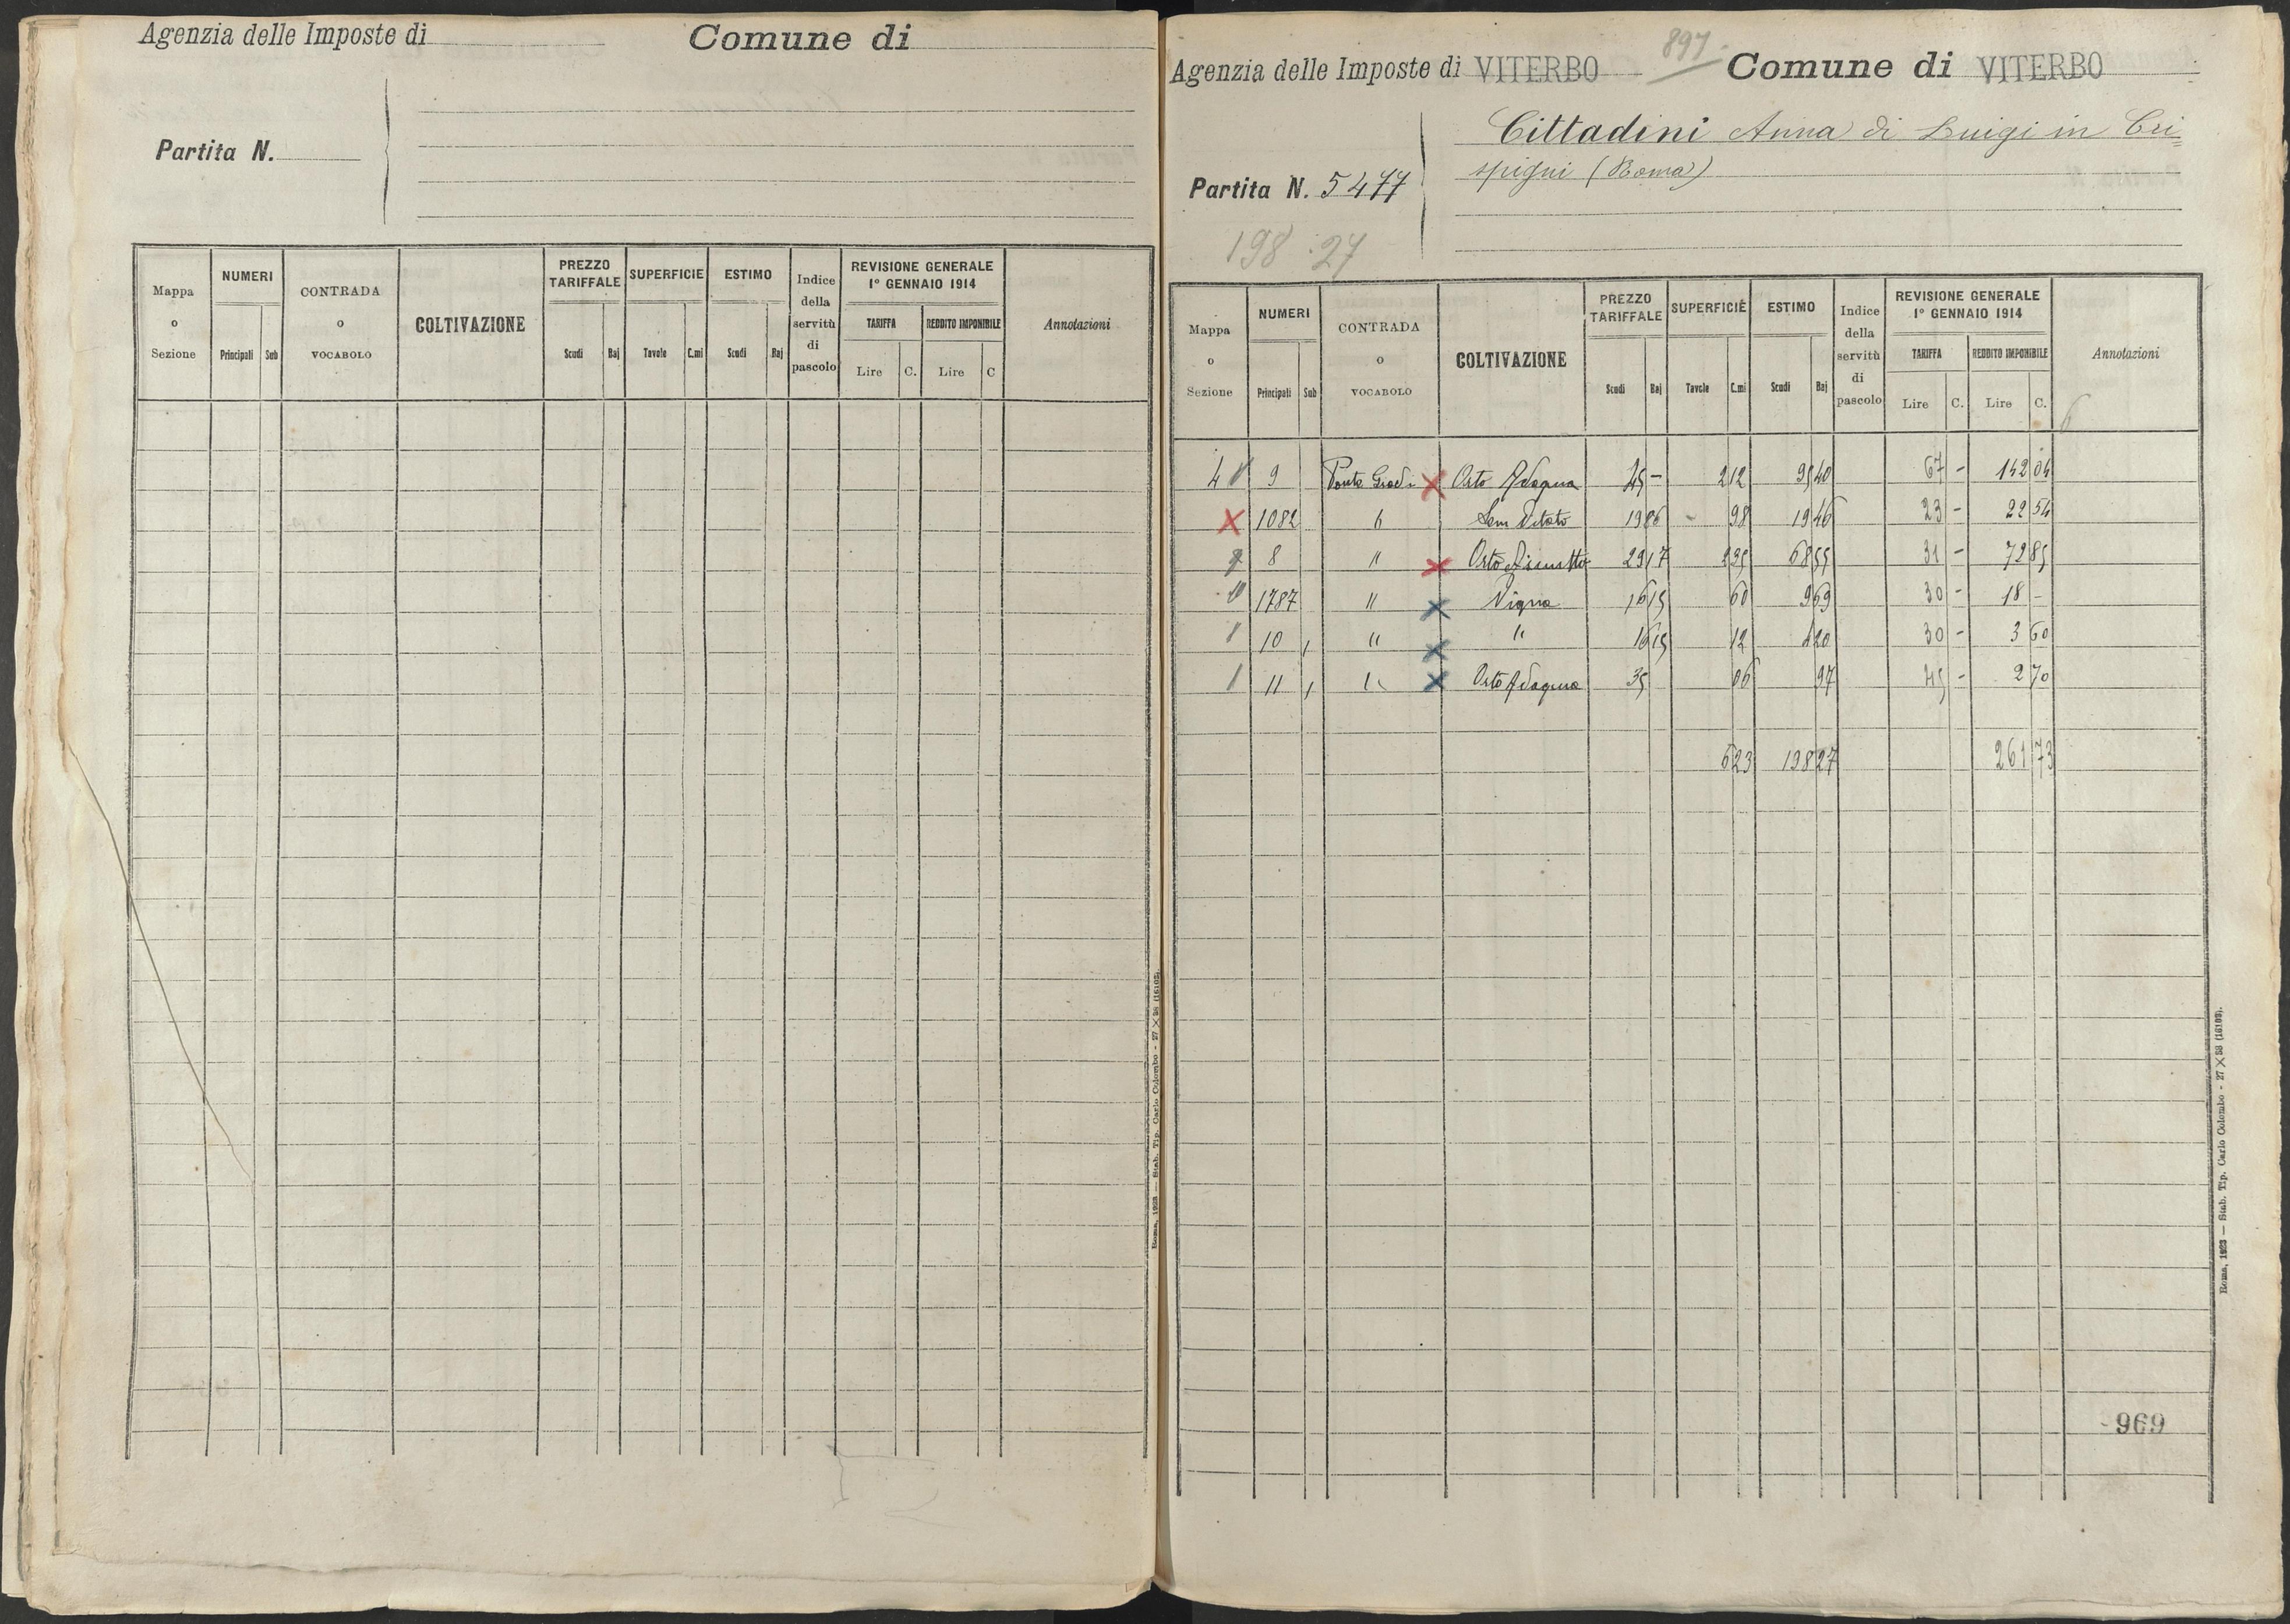 Agenzia delle Imposte di Comune di
Partita N.
Mappa o Sezione NUMERI Principali Sub CONTRADA o VOCABOLO COLTIVAZIONE PREZZO TARIFFALE Scudi Baj SUPERFICIE Tavole C.mi ESTIMO Scudi Baj Indice della servitù di pascolo REVISIONE GENERALE 1° GENNAIO 1914 TARIFFA Lire C. REDDITO IMPONIBILE Lire C Annotazioni
Roma, 1923 — Stab. Tip. Carlo Colombo - 27 X 38 (16102).
897
Agenzia delle Imposte di VITERBO Comune di VITERBO
Cittadini Anna di Luigi in Cri=
spigni (Roma)
Partita N. 5477
198.27
Mappa o Sezione NUMERI Principali Sub CONTRADA o VOCABOLO COLTIVAZIONE PREZZO TARIFFALE Scudi Baj SUPERFICIE Tavole C.mi ESTIMO Scudi Baj Indice della servitù di pascolo REVISIONE GENERALE 1° GENNAIO 1914 TARIFFA Lire C. REDDITO IMPONIBILE Lire C. Annotazioni
4 9 Ponte Gradi X Orto Adaqua 45 - 2 12 95 40 67 - 142 04
X 1082 Sem Vitato 19 86 - 98 19 46 23 - 22 54
8 " X Orto 29 17 2 35 68 55 31 - 72 85
1787 " X Vigna 16 15 60 9 69 30 - 18 -
10 " X " 16 15 12 1 20 30 - 3 60
11 " X Orto Adaqua 35 06 97 45 - 2 70
6 23 198 27 261 73
969
Roma, 1923 — Stab. Tip. Carlo Colombo - 27 X 38 (16102).